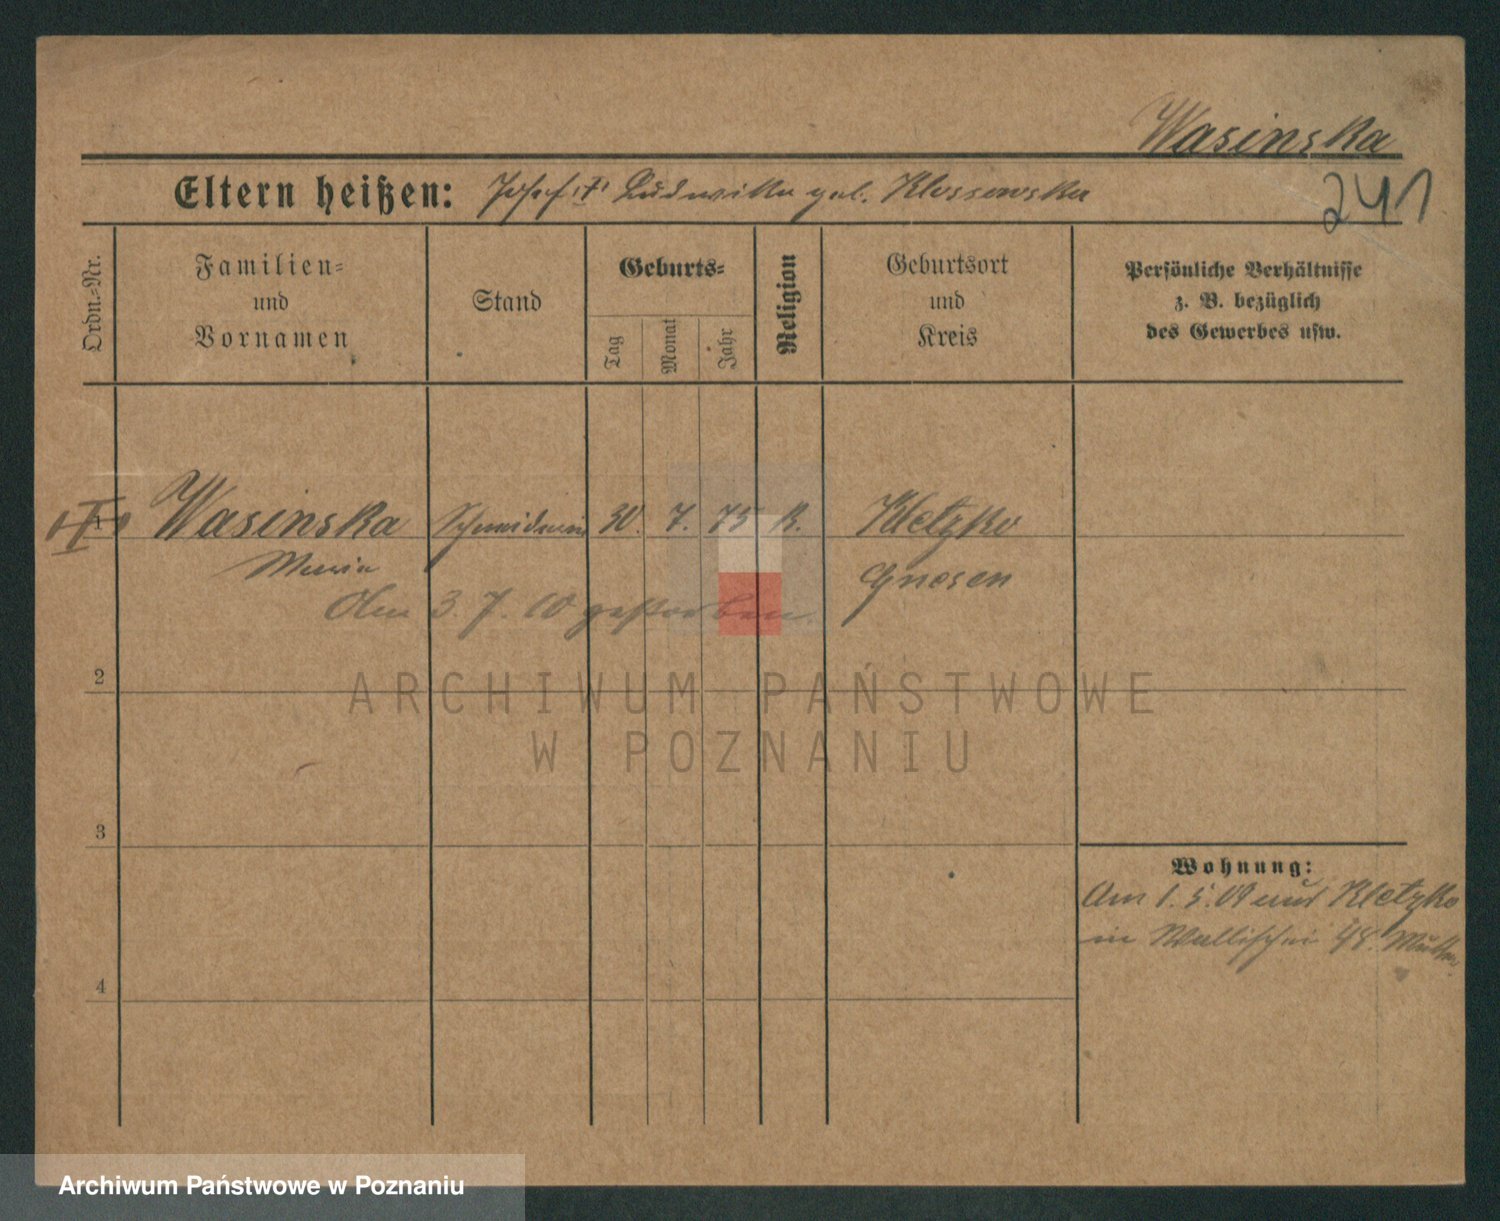 Wasinska
Eltern heißen: Josef "†" Ludwika geb. Klossowska
241
Ordn.-Nr.
Familien-
und
Vornamen
Stand
Geburts-
Tag
Monat
Jahr
Religion
Geburtsort
und
Kreis
Persönliche Verhältnisse
z. B. bezüglich
des Gewerbes usw.
1 Wasinska Schneiderin 30. 7. 75 K. Kletzko
Maria Gnesen
Am 3. 7. 10 gestorben.
2
3
4
Wohnung:
Am 1. 5. 09 aus Kletzko
in Wallischei 48. Mutter
ARCHIWUM PAŃSTWOWE
W POZNANIU
Archiwum Państwowe w Poznaniu